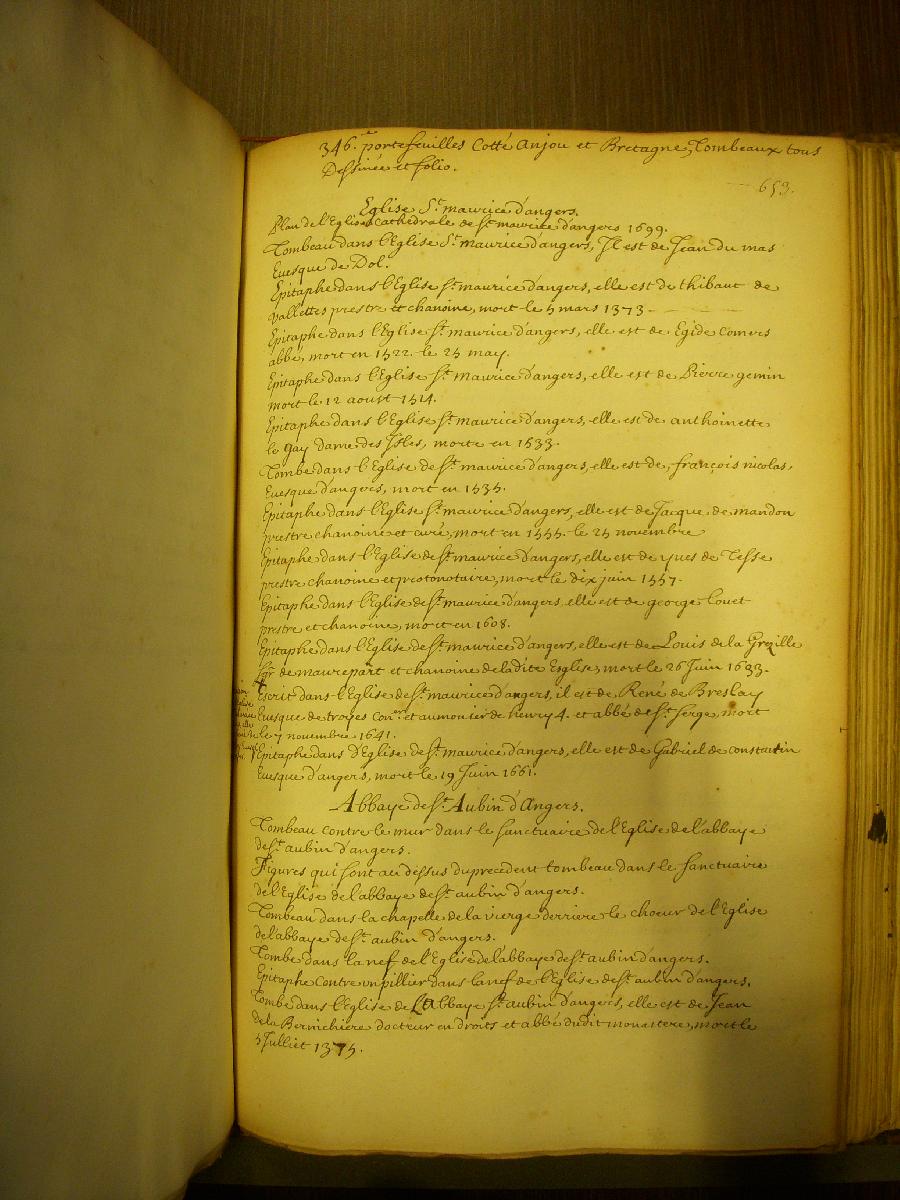 346.e portefeuilles Cotté Anjou et Bretagne, Tombeaux tous
Dessinée et folio.
653.
Eglise St. maurice d'angers.
Plan de l'Eglise Cathedrale de St maurice d'angers 1699.
Tombeau dans l'Eglise St. maurice d'angers, Il est de Jean du mas
Euesque de Dol.
Epitaphe dans l'Eglise St. maurice d'angers, elle est de thibaut de
vallettes prestre et chanoine, mort le 5 mars 1373
Epitaphe dans l'Eglise St. maurice d'angers, elle est de Egide Comers
abbé, mort en 1522. le 25 may.
Epitaphe dans l'Eglise St. maurice d'angers, elle est de Pierre gemin
mort le 12 aoust 1514.
Epitaphe dans l'Eglise St. maurice d'angers, elle est de anthoinette
le Gay dame des Isles, morte en 1533.
Tombe dans l'Eglise de St. maurice d'angers, elle est de, françois nicolas,
Euesque d'angers, mort en 1535.
Epitaphe dans l'Eglise St. maurice d'angers, elle est de Jacque de mandon
prestre chanoine et curé, mort en 1555. le 25 novembre
Epitaphe dans l'Eglise de St. maurice d'angers, elle est de yues de Tesse
prestre chanoine et protonotaire, mort le dix juin 1557.
Epitaphe dans l'Eglise de St. maurice d'angers, elle est de george louet
prestre et chanoine, mort en 1608.
Epitaphe dans l'Eglise de St. maurice d'angers, elle est de Louis de la Grezille
Sgr de maurepart et chanoine de ladite Esglise, mort le 26 Juin 1633.
Escrit dans l'Eglise de St. maurice d'angers, il est de René de Breslay
Euesque de troyes Coner. et aumonier de henry 4. et abbé de St. Serge, mort
le 7 novembre 1641.
Epitaphe dans l'Eglise de St. maurice d'angers, elle est de Gabriel de constantin
Euesque d'angers, mort le 19 Juin 1661.
Abbaye de St. Aubin d'Angers.
Tombeau contre le mur dans le Sanctuaire de l'Eglise de l'abbaye
de St. aubin d'angers.
Figures qui sont au dessus du precedent tombeau dans le Sanctuaire
de l'Eglise de l'abbaye de St. aubin d'angers.
Tombeau dans la chapelle de la vierge derriere le choeur de l'Eglise
de l'abbaye de St. aubin d'angers.
Tombe dans la nef de l'Eglise de l'abbaye de St. aubin d'angers.
Epitaphe Contre un pillier dans la nef de l'Eglise de St. aubin d'angers.
Tombe dans l'Eglise de L'Abbaye St. aubin d'angers, elle est de Jean
de la Bernichere docteur en droits et abbé dudit monastere, mort le
5 Julliet 1375.